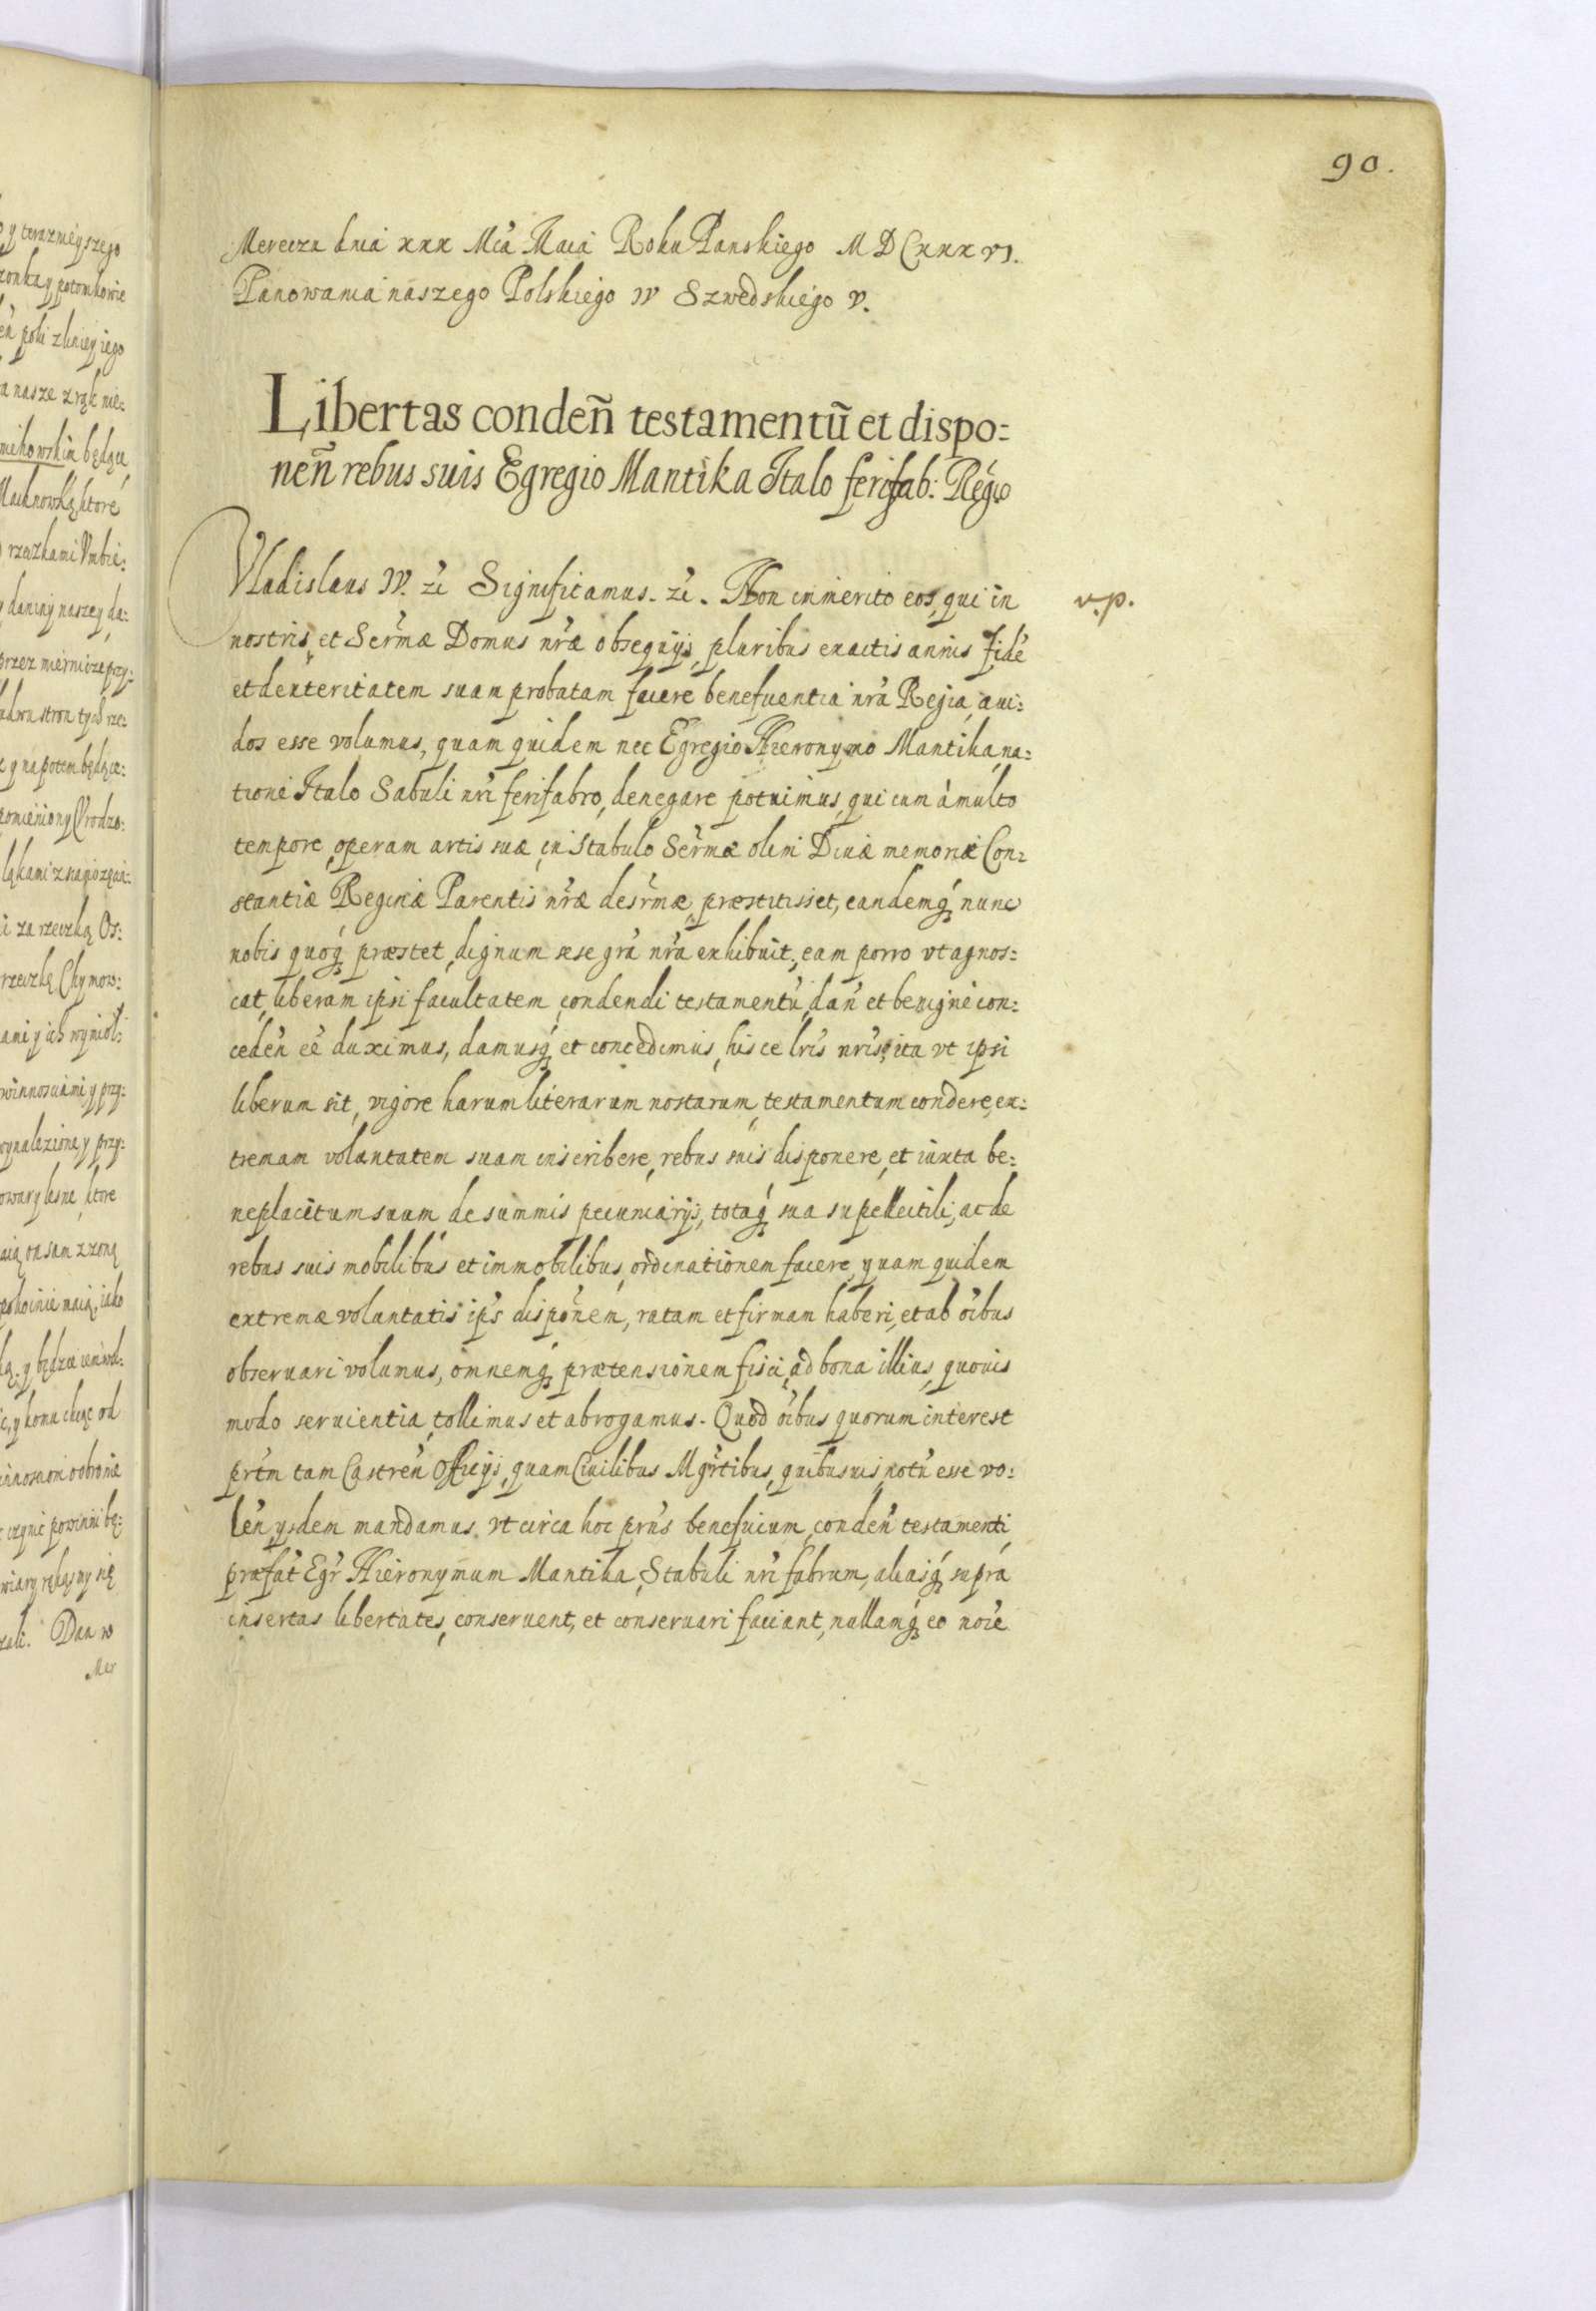 90.
Merecza dnia xxx Mcā Maia Roku Panskiego M D Cxxx vi.
Panowania naszego Polskiego IV Szwedskiego V.
Libertas condeñ testamentū et dispo=
neñ rebus suis Egregio Mantika Italo ferifab: Regio
Vladislaus IV. zc Significamus. zc. Non immerito eos, qui in
v.p.
nostris, et Serm̃æ Domus nr̃æ obsequijs, pluribus exactis annis fidē
et dexteritatem suam probatam facere beneficentia nr̃a Regia, aui=
dos esse volumus, quam quidem nec Egregio Hieronymo Mantika, na=
tione Italo Sabuli nr̃i ferifabro, denegare potuimus, qui cum à multo
tempore, operam artis suæ, in Stabulo Serm̃æ olim Diuæ memoriæ Con=
stantiæ Reginæ Parentis nr̃æ desrm̃æ, præstitisset, eandemq́ꝫ nunc
nobis quoq́ꝫ præstet, dignum sese grã nr̃a exhibuit, eam porro vt agnos=
cat, liberam ipsi facultatem, condendi testamentū, dañ et benigne con=
cedeñ eē duximus, damusq́ꝫ et concedimus, hisce lr̃is nr̃is, ita vt ipsi
liberum sit, vigore harum literarum nostarum, testamentum condere, ex=
tremam voluntatem suam inscribere, rebus suis disponere, et iuxta be=
neplacitum suum de summis pecuniarijs, totaq́ꝫ sua supellectili, ac de
rebus suis mobilibus et immobilibus, ordinationem facere, quam quidem
extremæ voluntatis ip̃s disponem̃, ratam et firmam haberi, et ab oĩbus
obseruari volumus, omnemq́ꝫ prætensionem fisci, ad bona illius, quouis
modo seruientia, tollimus et abrogamus. Quod oĩbus quorum interest
prtm̃ tam Castreñ Officijs, quam Ciuilibus Mgr̃tibus, quibusuis, notū esse vo=
leñ ysdem mandamus. vt circa hoc prñs beneficium, condeñ testamenti,
præfat̃ Egr̃ Hieronymum Mantika, Stabuli nr̃i fabrum, aliasq́ꝫ suprá
insertas libertates, conseruent, et conseruari faciant, nullamq́ꝫ eo noĩe